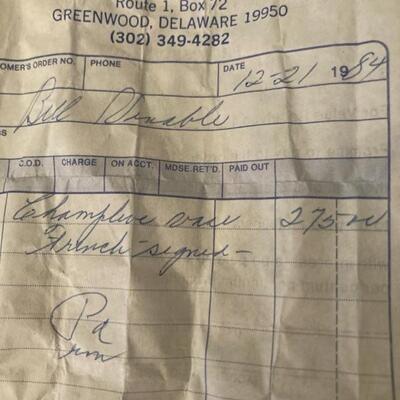 Route 1, Box 72
GREENWOOD, DELAWARE 19950
(302) 349-4282
OMER'S ORDER NO. PHONE DATE 12-21 1984
Bill
SS
C.O.D. CHARGE ON ACCT. MDSE. RET'D. PAID OUT
Champleve vase 275 00
French - signed -
Pd